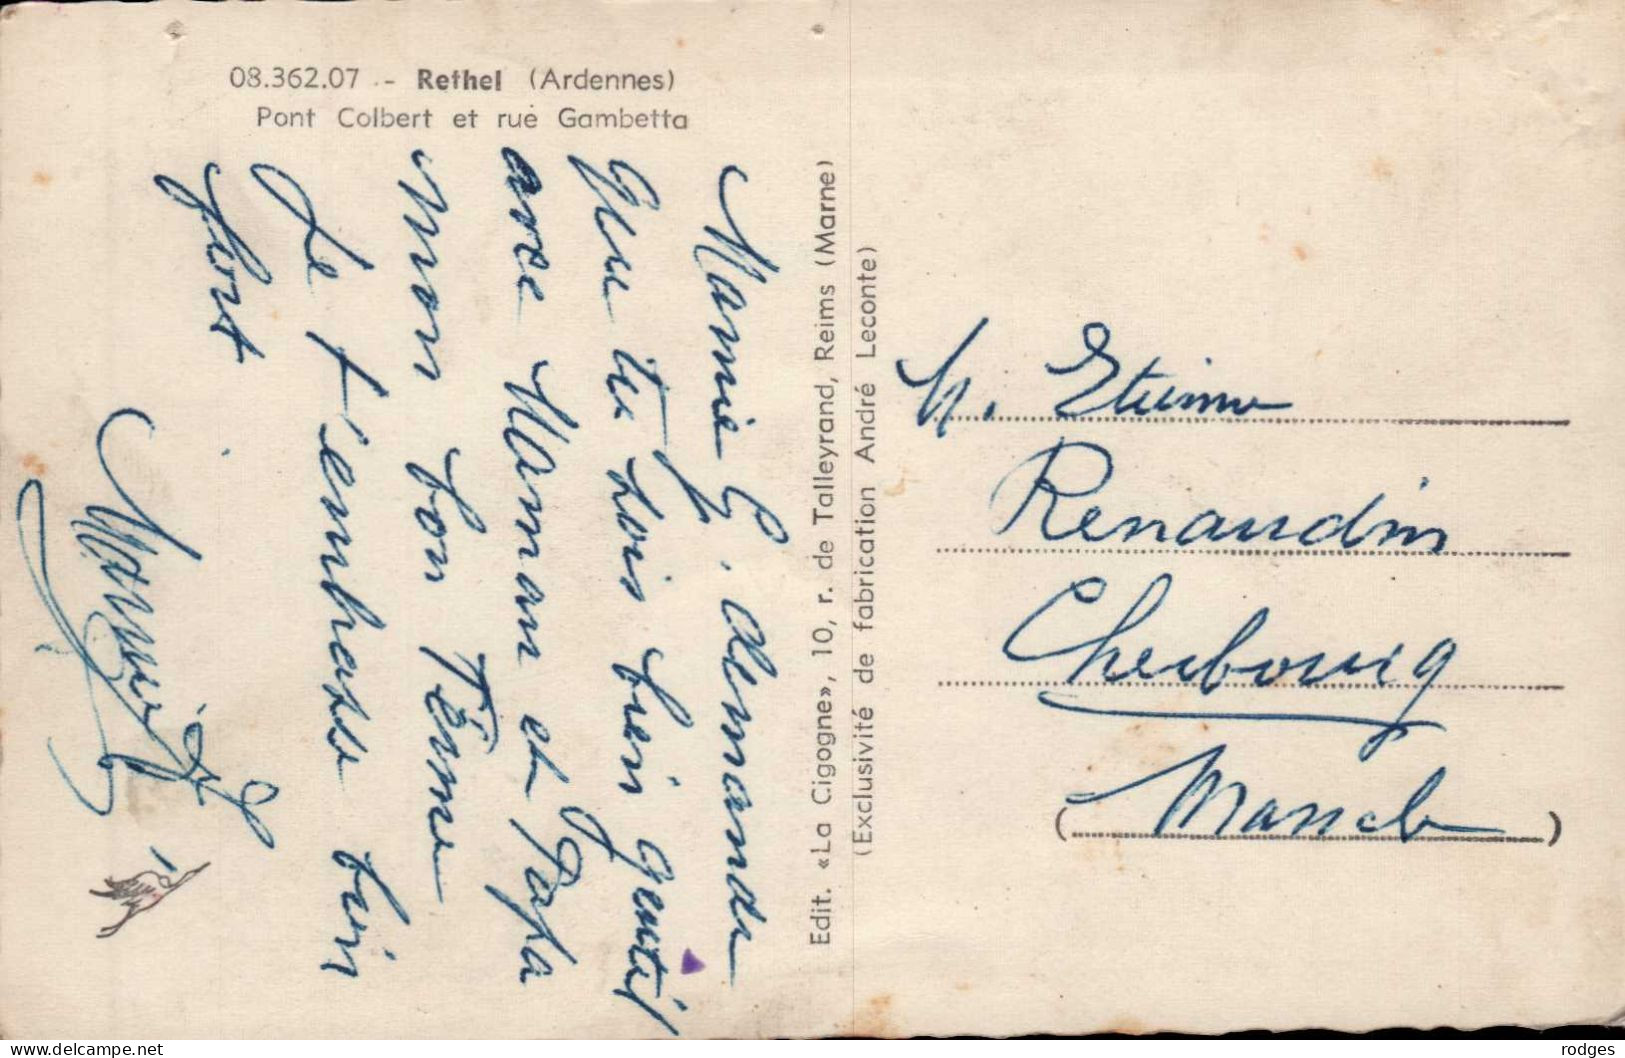 08.362.07 - Rethel (Ardennes)
Pont Colbert et rue Gambetta
Mamie G. demande
que tu sois bien gentil
avec Maman et Papa
mon bon Tienne
Je t'embrasse bien
fort
Mamie G
Edit. «La Cigogne», 10, r. de Talleyrand, Reims (Marne)
(Exclusivité de fabrication André Leconte)
M. Etienne
Renaudin
Cherbourg
(Manche)
delcampe.net
rodges